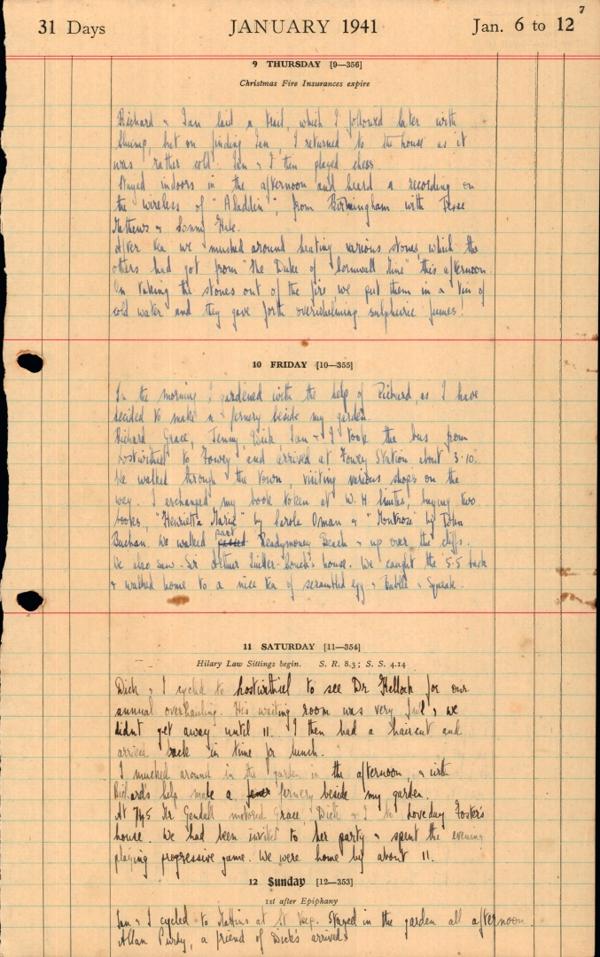 7
31 Days JANUARY 1941 Jan. 6 to 12
9 THURSDAY [9—356]
Christmas Fire Insurances expire
Richard & Ian laid a trail, which I followed later with
but on finding Ian, I returned to the house as it
was rather cold. Ian & I then played chess.
Stayed indoors in the afternoon and heard a recording on
the wireless of "Aladdin", from Birmingham with Jessie
Mathews & Sonnie Hale.
After tea we mucked around heating various stones, which the
others had got from "the Duke of Cornwall Mine" this afternoon.
On taking the stones out of the fire we put them in a tin of
cold water and they gave forth overwhelming sulphuric fumes!
10 FRIDAY [10—355]
In the morning I gardened with the help of Richard, as I have
decided to make a fernery beside my garden.
Richard, Grace, Jenny, Dick, Ian & I took the bus from
Lostwithiel to Fowey and arrived at Fowey Station about 3.10.
We walked through the town, visiting various shops on the
way. I exchanged my book token at W. H. Smiths, buying two
books, "Henrietta Maria" by Carola Oman & "Montrose" by John
Buchan. We walked past Readymoney Beach & up over the cliffs.
We also saw Sir Arthur Quiller-Couch's house. We caught the 5.5 back
& walked home to a nice tea of scrambled egg & Bubble & Squeak.
11 SATURDAY [11—354]
Hilary Law Sittings begin. S. R. 8.3; S. S. 4.14
Dick & I cycled to Lostwithiel to see Dr. for our
annual overhauling. His waiting room was very full & we
didnt get away until 11. I then had a haircut and
arrived back in time for lunch.
I mucked around in the garden in the afternoon & with
Richard's help made a fernery beside my garden.
At 7.45 Mr Gendall motored Grace, Dick & I to Loveday Foster's
house. We had been invited to her party & spent the evening
playing progressive game. We were home by about 11.
12 Sunday [12—353]
1st after Epiphany
Ian & I cycled to Mattins at St Veep. Stayed in the garden all afternoon.
Allan Purdy, a friend of Dick's arrived